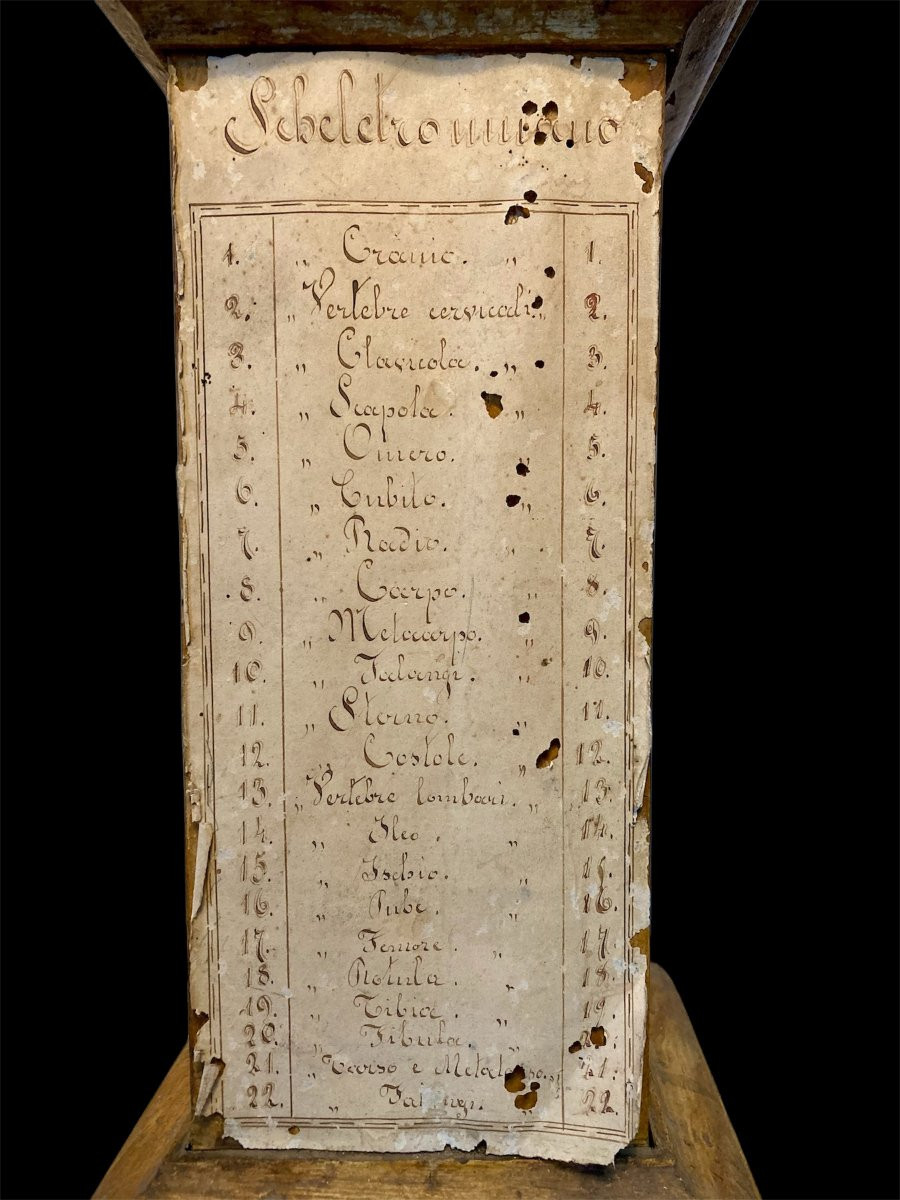 Scheletro umano
1. „ Cranio. „ 1.
2. „ Vertebre cervicali. „ 2.
3. „ Clavicola. „ 3.
4. „ Scapola. „ 4.
5. „ Omero. „ 5.
6. „ Cubito. „ 6.
7. „ Radio. „ 7.
8. „ Carpo. „ 8.
9. „ Metacarpo. „ 9.
10. „ Falangi. „ 10.
11. „ Sterno. „ 11.
12. „ Costole. „ 12.
13. „ Vertebre lombari. „ 13.
14. „ Ileo. „ 14.
15. „ Ischio. „ 15.
16. „ Pube. „ 16.
17. „ Femore. „ 17.
18. „ Rotula. „ 18.
19. „ Tibia. „ 19.
20. „ Fibula. „
21. „ Tarso e „ 21.
22. „ „ 22.